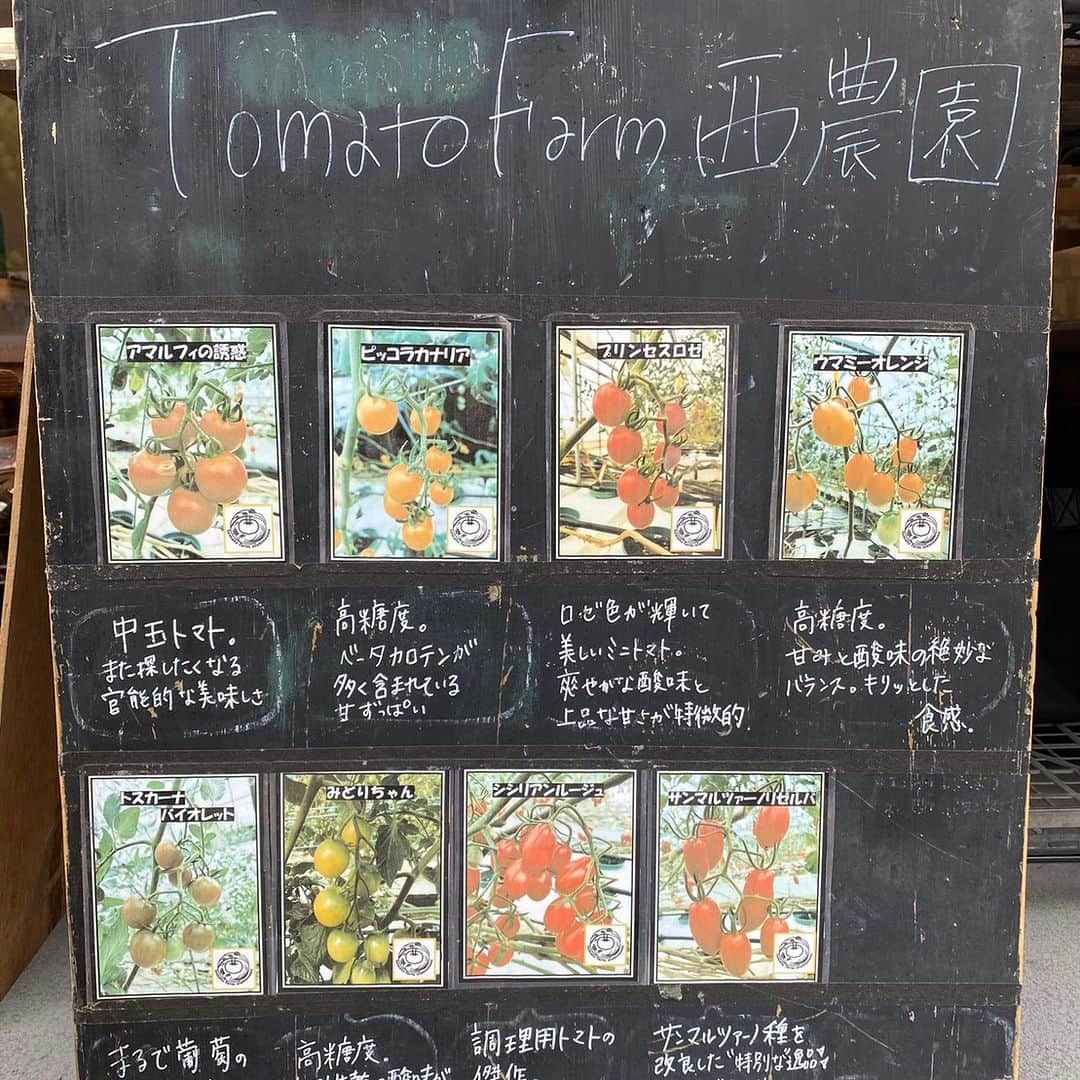 Tomato Farm 西農園
アマルフィの誘惑
ピッコラカナリア
プリンセスロゼ
ウマミーオレンジ
中玉トマト。
また探したくなる
官能的な美味しさ
高糖度。
ベータカロテンが
多く含まれている
甘ずっぱい
ロゼ色が輝いて
美しいミニトマト。
爽やかな酸味と
上品な甘さが特徴的
高糖度。
甘みと酸味の絶妙な
バランス。キリッとした
食感。
トスカーナ
バイオレット
みどりちゃん
シシリアンルージュ
サンマルツァーノリゼルバ
まるで葡萄の
高糖度。
調理用トマトの
傑作。
サンマルツァーノ種を
改良した特別な逸品